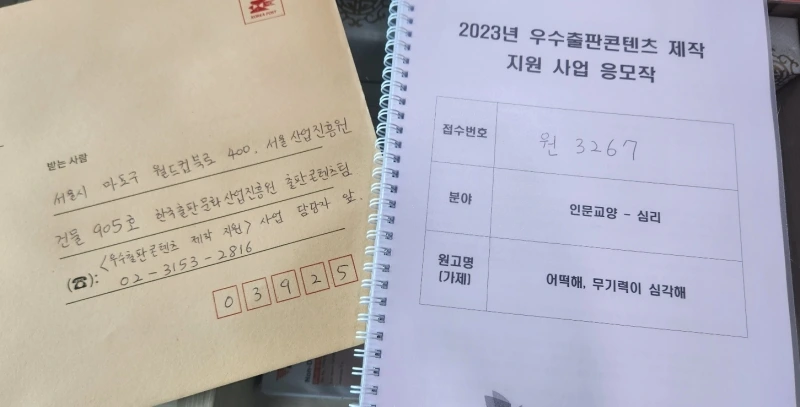 KOREA POST
받는 사람
서울시 마포구 월드컵북로 400, 서울산업진흥원
건물 905호 한국출판문화산업진흥원 출판콘텐츠팀
<우수출판콘텐츠 제작 지원> 사업 담당자 앞.
(☎): 02-3153-2816
03925
2023년 우수출판콘텐츠 제작
지원 사업 응모작
접수번호 원 3267
분야 인문교양 - 심리
원고명
(가제) 어떡해, 무기력이 심각해